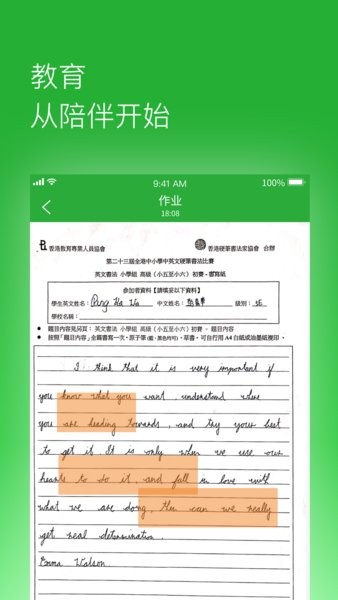 教育
从陪伴开始
9:41 AM
100%
作业
18:08
香港教育專業人員協會
香港硬筆書法家協會 合辦
第二十三屆全港中小學中英文硬筆書法比賽
英文書法 小學組 高級（小五至小六）初賽 - 書寫紙
參加者資料【請填妥以下資料】
學生英文姓名： Pang Ka Wa 中文姓名： 級別：
學校名稱：
● 題目內容見另頁： 英文書法 小學組 高級（小五至小六）初賽 - 題目內容
● 按照「題目內容」全篇書寫一次，原子筆（藍、黑色均可），草書，可自行用 A4 白紙或油墨紙複印。
I think that it is very important if
you know what you want understand where
you are heading towards, and try your best
to get it. It is only when we use our
hearts to do it, and fall in love with
what we are doing, then can we really
get real determination.
Emma Watson